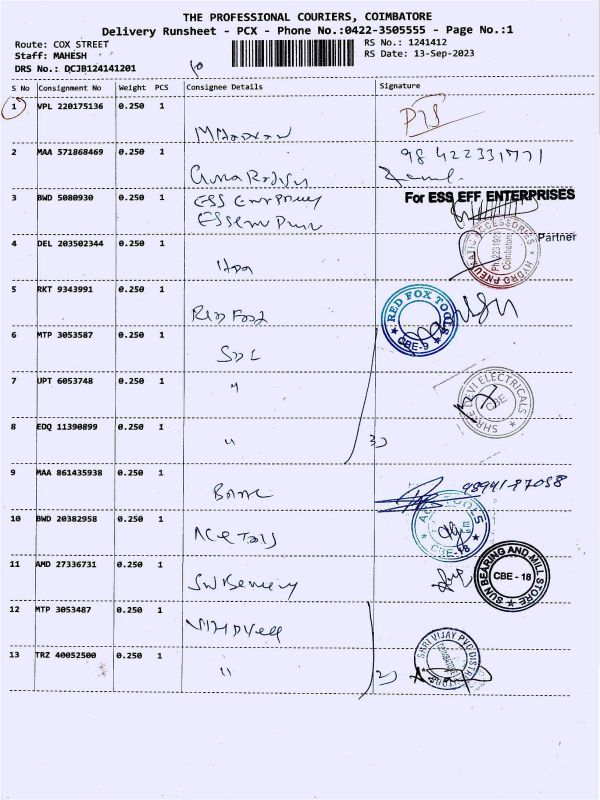 THE PROFESSIONAL COURIERS, COIMBATORE
Delivery Runsheet - PCX - Phone No.:0422-3505555 - Page No.:1
Route: COX STREET
RS No.: 1241412
Staff: MAHESH
RS Date: 13-Sep-2023
DRS No.: DCJB124141201
10
S No Consignment No Weight PCS Consignee Details Signature
1 VPL 220175136 0.250 1
2 MAA 571868469 0.250 1
98 422331771
3 BWD 5080930 0.250 1
For ESS EFF ENTERPRISES
Partner
HYDRO PNEUMATIC ACCESSORIES
Coimbatore
4 DEL 203502344 0.250 1
5 RKT 9343991 0.250 1 RED FOX
RED FOX TOOLS
CBE-9
6 MTP 3053587 0.250 1 SDL
7 UPT 6053748 0.250 1 "
SHREE DEVI ELECTRICALS
CBE
8 EDQ 11390899 0.250 1 "
3)
9 MAA 861435938 0.250 1
98941-87058
10 BWD 20382958 0.250 1 Ace Tools
ACE TOOLS
CBE-18
11 AMD 27336731 0.250 1
SUN BEARING AND MILL STORE
CBE - 18
12 MTP 3053487 0.250 1
13 TRZ 40052500 0.250 1 "
2)
SHRI VIJAY PVC DISTRIBUTORS